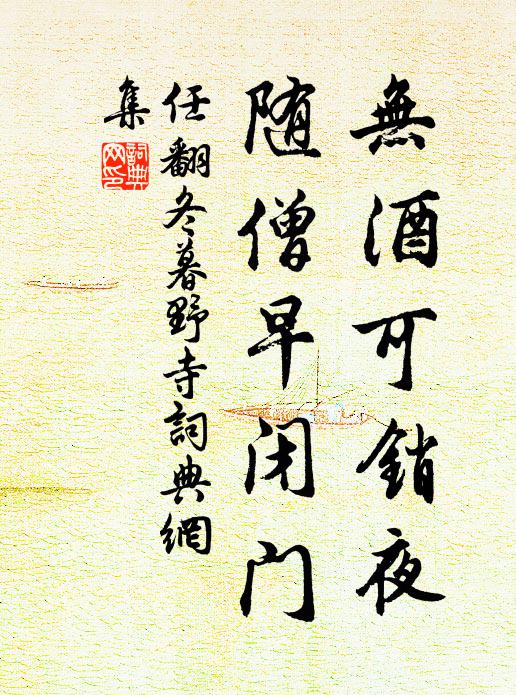 無酒可銷夜
随僧早闭门
任翻冬暮野寺詞典網
集
詞典
网印